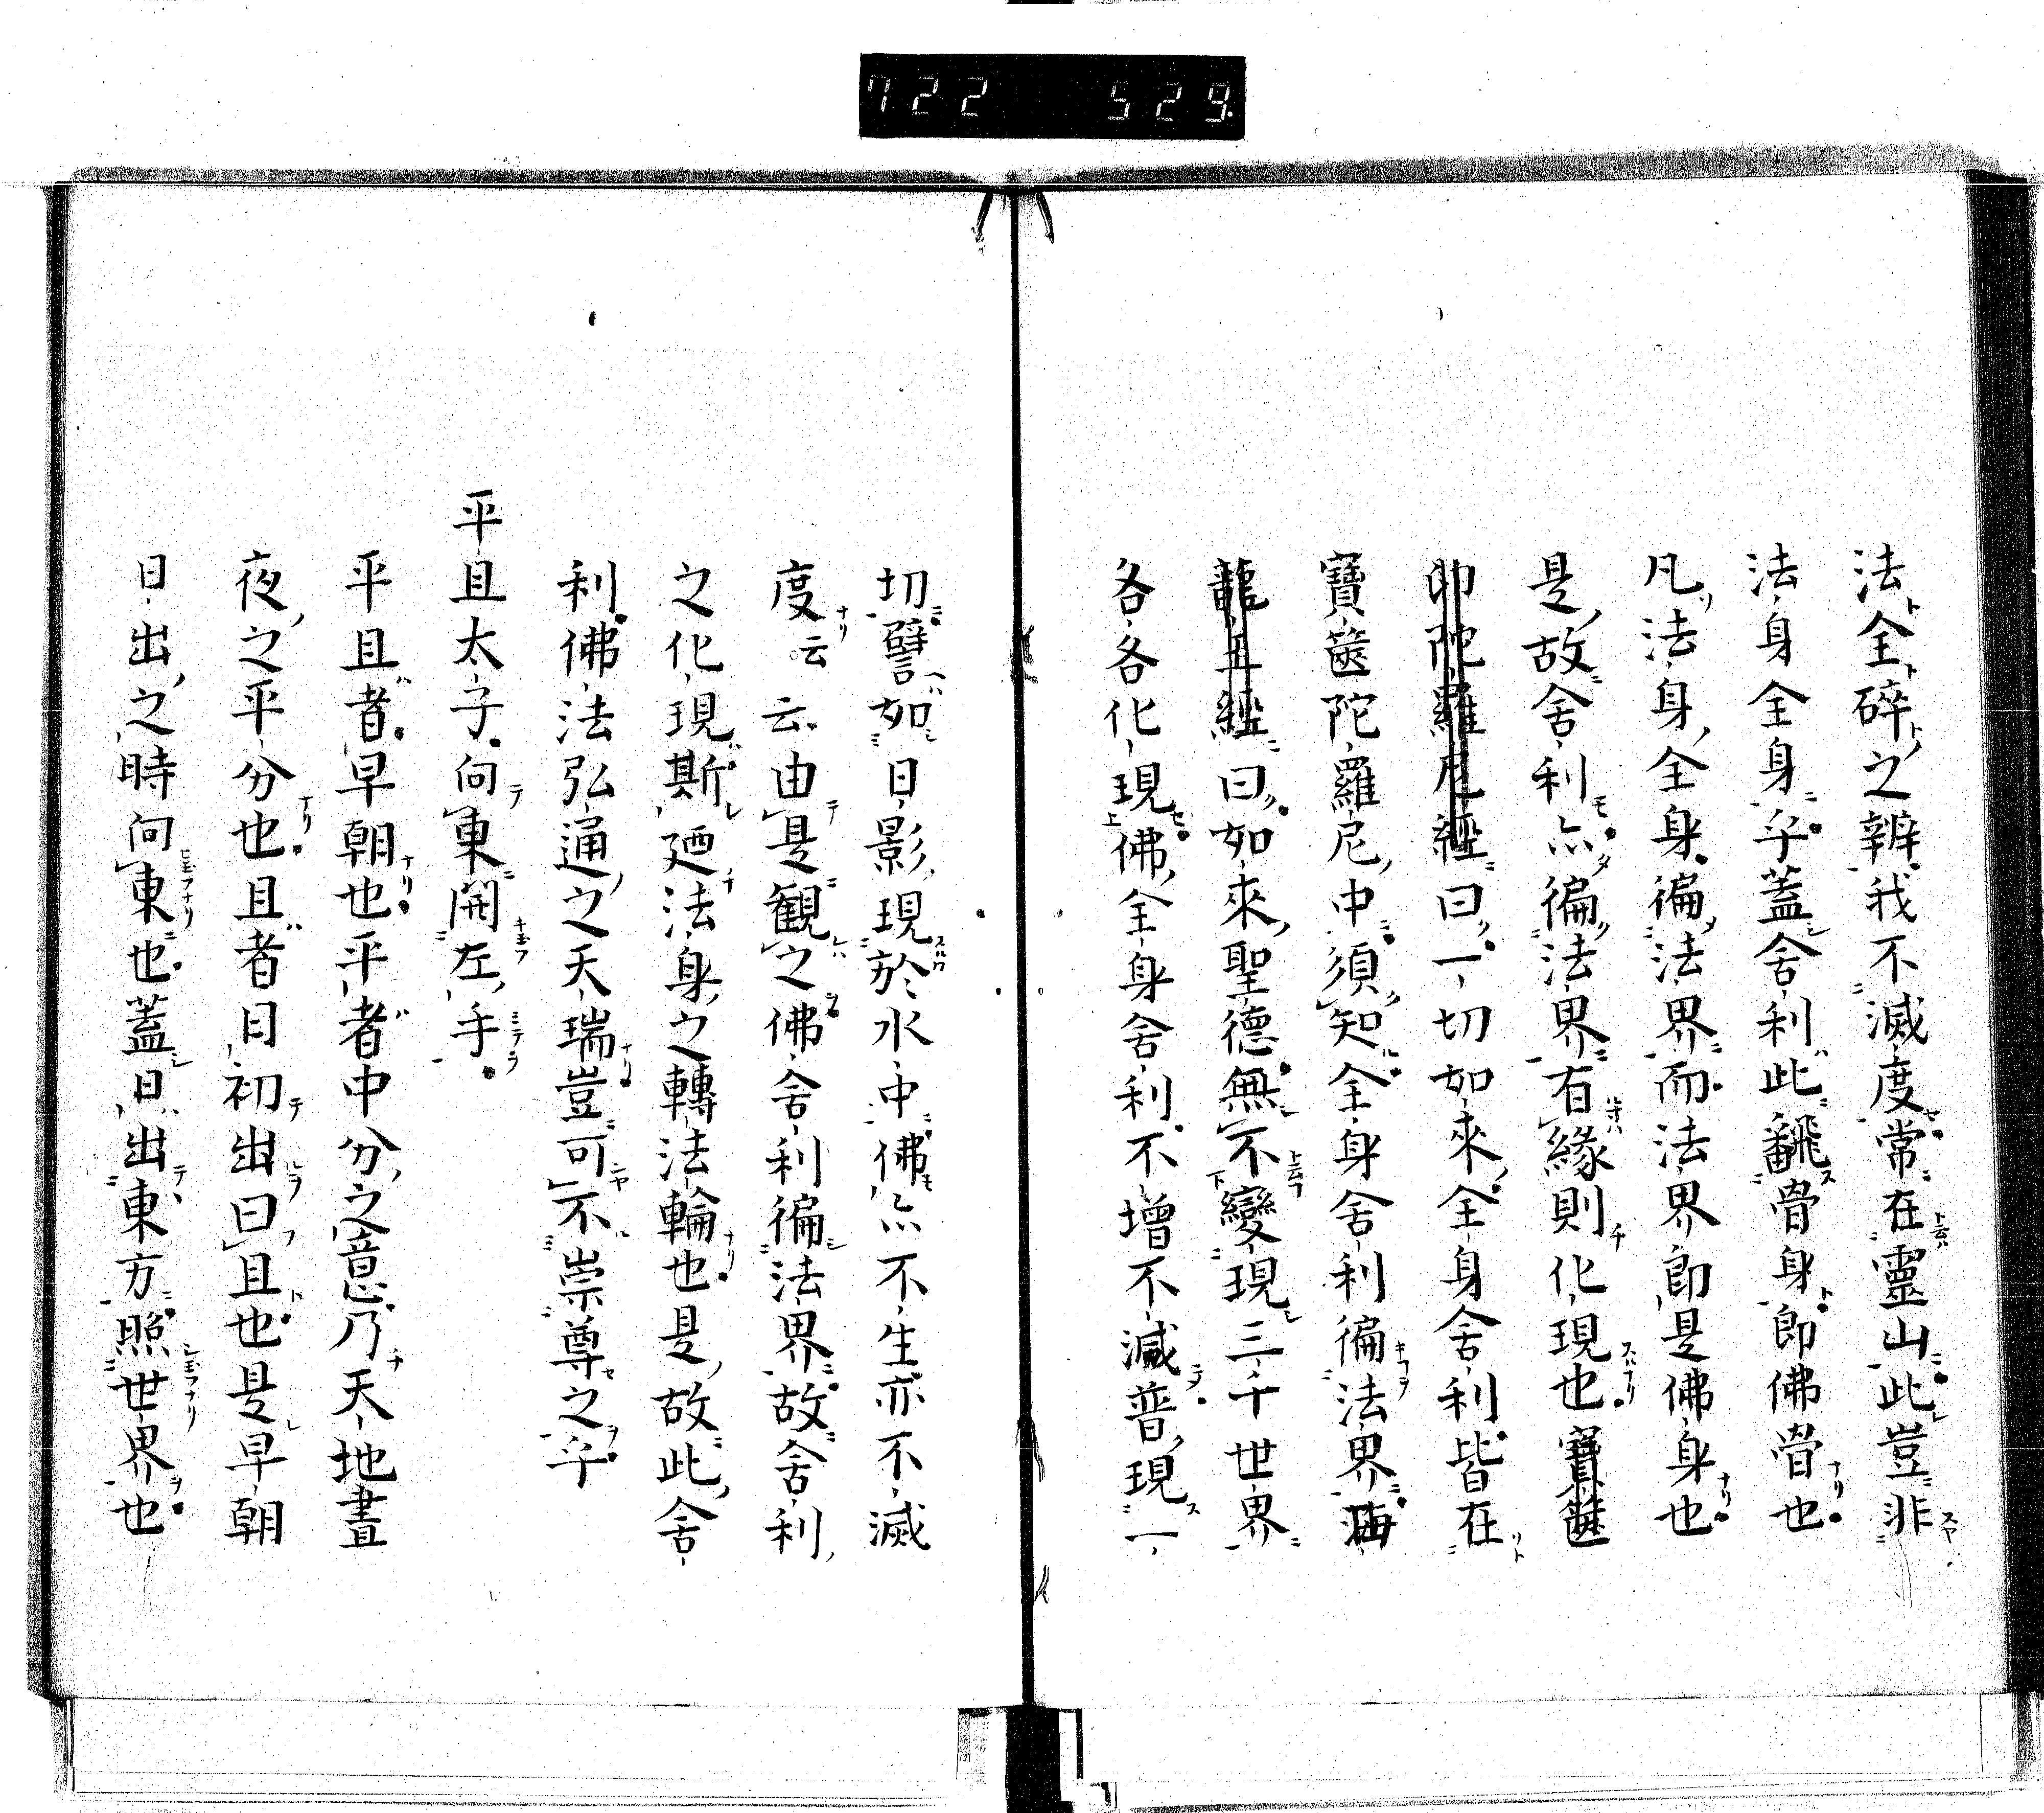 722 529
法全碎之辨我不滅度常在靈山此豈非
法身全身乎蓋舍利此飜骨身即佛骨也
凡法身全身徧法界而法界即是佛身也
是故舍利亦徧法界有緣則化現也寶篋
印陀羅尼經曰一切如來全身舍利皆在
寶篋陀羅尼中須知全身舍利徧法界海
龍王經曰如來聖德無不變現三千世界
各各化現佛全身舍利不增不減普現一
切譬如日影現於水中佛亦不生亦不滅
度云云由是觀之佛舍利徧法界故舍利
之化現斯廼法身之轉法輪也是故此舍
利佛法弘通之天瑞豈可不崇尊之乎
平旦太子向東開左手
平旦者早朝也平者中分之意乃天地晝
夜之平分也旦者日初出曰旦也是早朝
日出之時向東也蓋日出東方照世界也